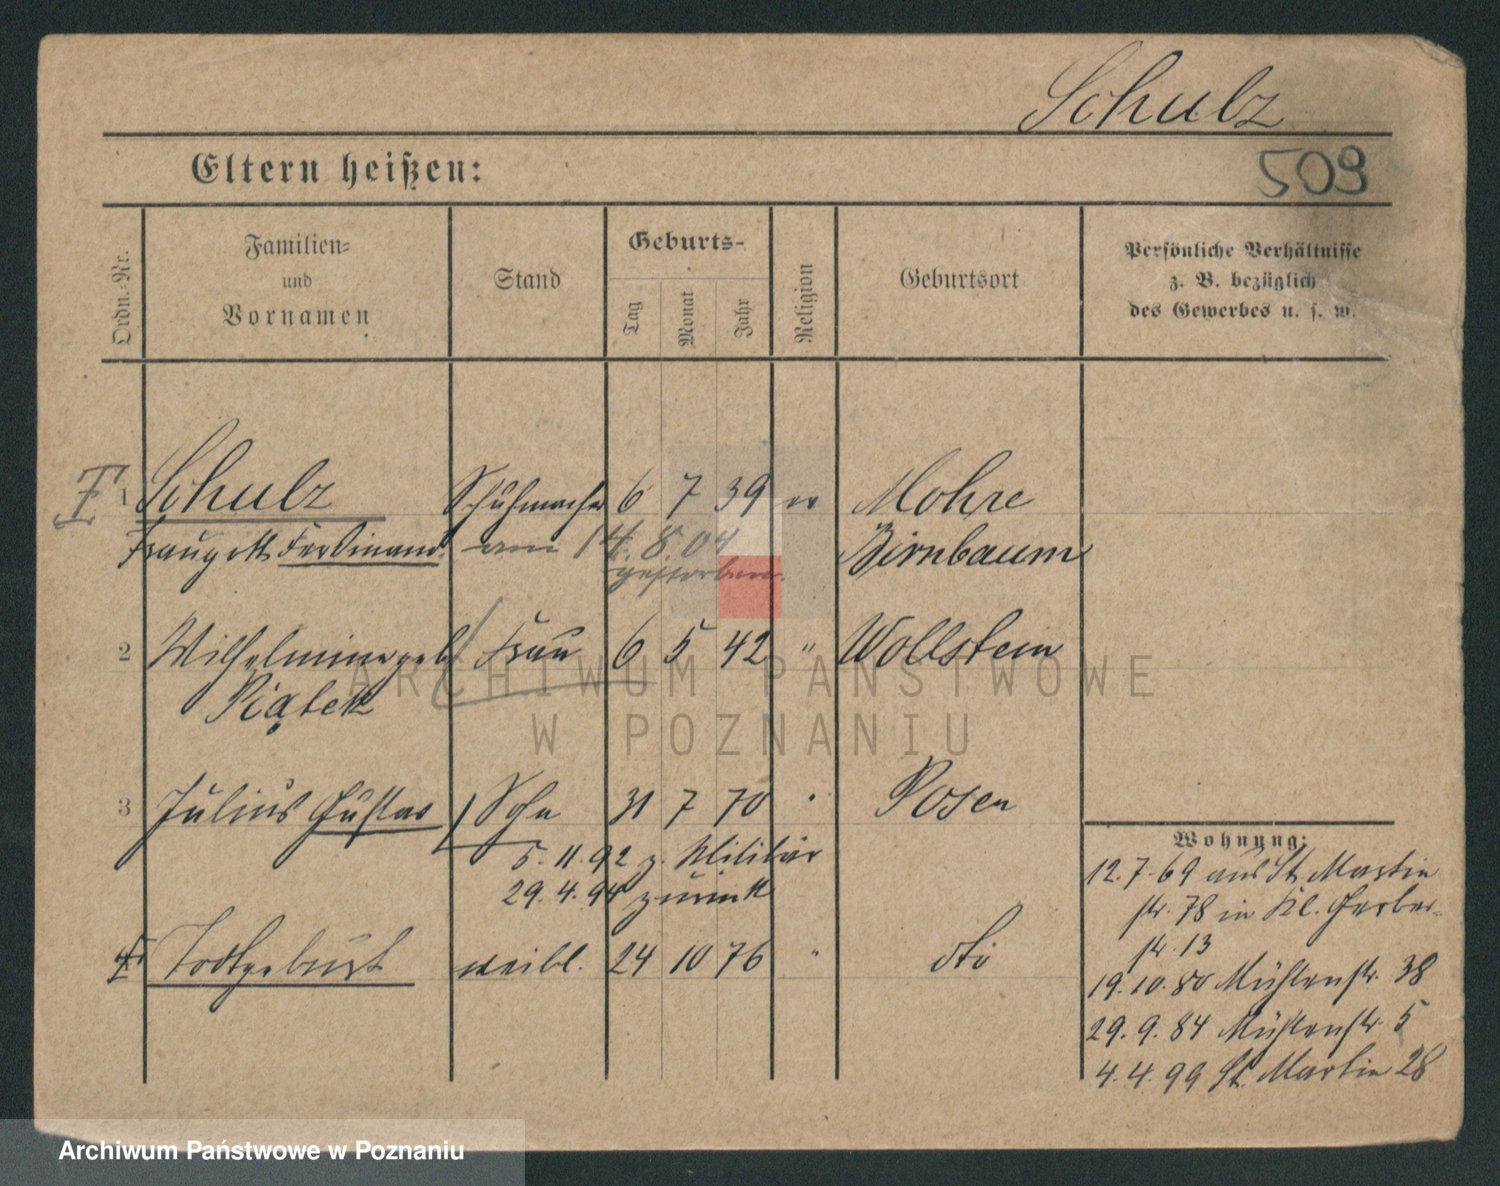 Schulz
Eltern heißen:
509
Ordn.-Nr.
Familien-
und
Vornamen
Stand
Geburts-
Tag
Monat
Jahr
Religion
Geburtsort
Persönliche Verhältnisse
z. B. bezüglich
des Gewerbes u. s. w.
1 Schulz Schuhmacher 6 7 39 ev Mohre
Traugott Ferdinand am 14.8.04 Birnbaum
gestorben
2 Wilhelmine geb Frau 6 5 42 " Wollstein
Piątek
3 Julius Gustav Sohn 31 7 70 " Posen
5.11.92 z. Militär
29.4.94 zurück
4 Todtgeburt weibl. 24 10 76 " dto
Wohnung:
12.7.69 aus St. Martin
str. 78 in Kl. Gerber-
str. 13
19.10.80 Mühlenstr. 38
29.9.84 Mühlenstr. 5
4.4.99 St. Martin 28
ARCHIWUM PAŃSTWOWE
W POZNANIU
Archiwum Państwowe w Poznaniu